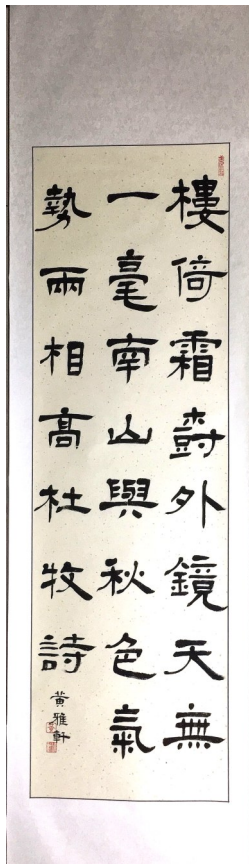 樓倚霜樹外鏡天無
一毫南山與秋色氣
勢兩相高杜牧詩
黃雅軒